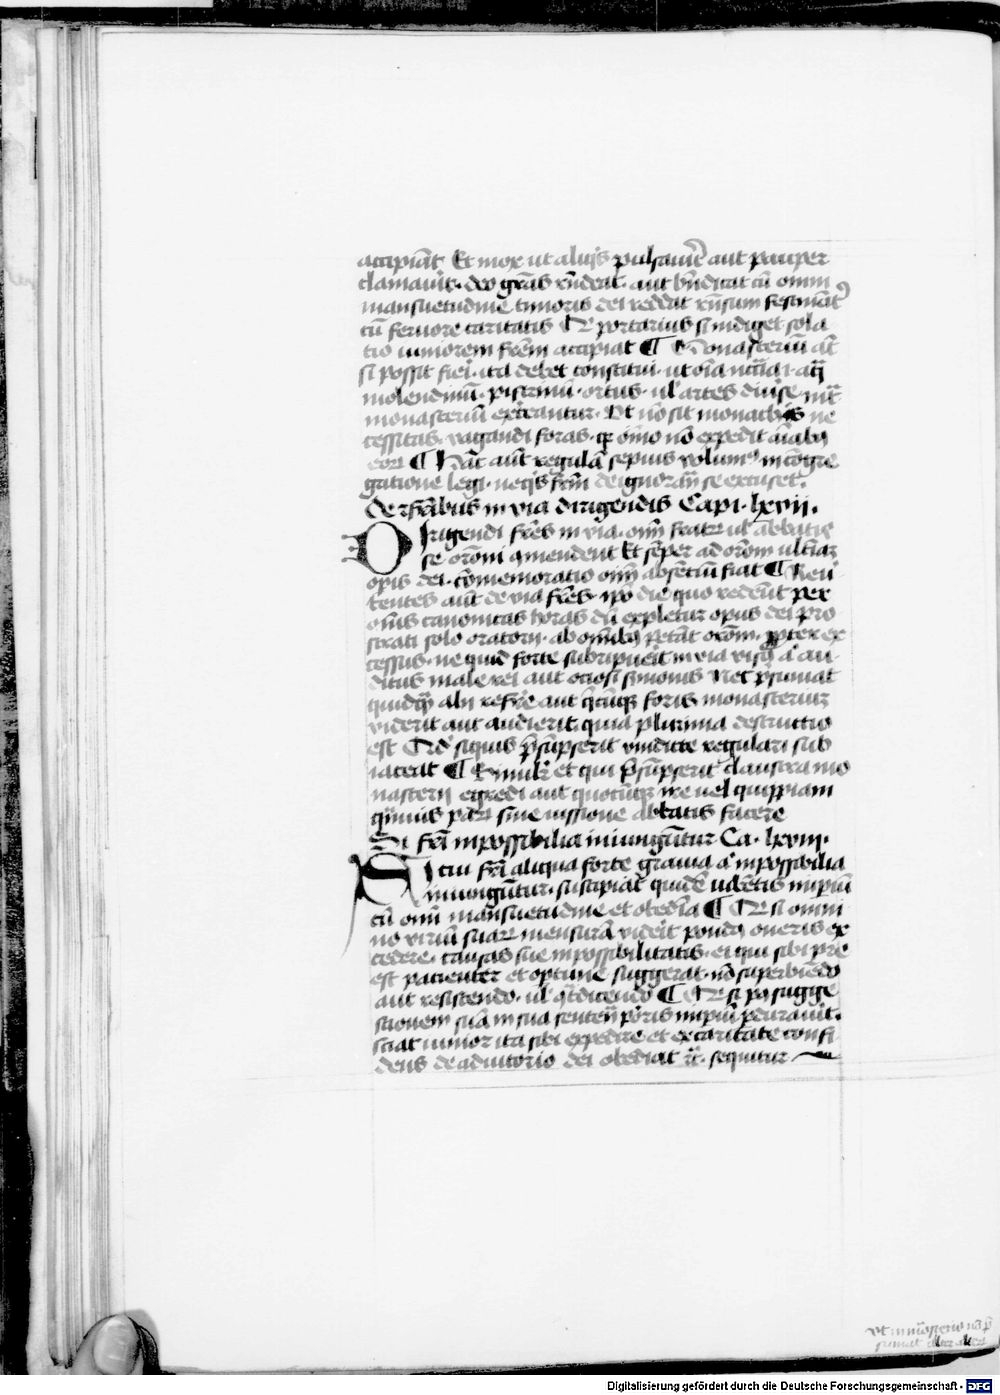 accipiāt Et mox ut aliq̄s pulsauīt aut pauper
clamauīt · deo gr̄as rn̄deat · aut bn̄dicat cū omni
mansuetudine timoris dei reddat rn̄sum festināt⁹
cū feruore caritatis Qr portarius si indiget sola
tio iuniorem frēm accipiat ¶ Monasteriū aūt
si possit fieri ita debet constitui · ut oīa nc̄cīa · aqͣ
molendinū · pistrinū · ortus · ul' artes diūse int̄
monasteriū exerceantur · Ut nō sit monachis ne
cessitas · vagandi foras · qr om̄io nō expedit aīabꝫ
eoꝝ ¶ Hāc aūt regulā sepius volum⁹ in cōgre
gatione legi · neq̄s fr̄m de ignorāt̄ se excuset ·
De fr̄ibus in via dirigendis Capi · lxvii ·
Dirigendi fr̄es in via · om̄i fratꝝ ul' abbatis
se orōni ꝯmendent Et sēper ad orōm ultiāꝫ
opis dei · cōmemoratio om̄i absentiū fiat ¶ Reu
tentes aūt de via fr̄es · ip̄o die quo redeūt per
om̄s canonicas horas dū expletur opus dei pro
strati solo oratorii · ab om̄ibꝫ petāt orōm · ꝓpter ex
cessus · ne quid forte subripuerit in via visꝫ aͨ au
ditus male rei aut otiosi sermonis Nec p̄sumat
quisqͣ alii refr̄e aut q̄cūqꝫ foris monasteriuꝫ
viderit aut audierit quia plurima destructio
est Qd' siquis p̄sūpserit vindicte regulari sub
iaceat ¶ Similr̄ et qui p̄sūpserit claustra mo
nasterii egredi aut quocūqꝫ ire uel quippiam
qͣmuis paruū sine iussione abbatis facere
Si fr̄i inpossibilia iniungūtur Ca · lxviii ·
Si cui fr̄i aliqua forte grauia aͨ inpossibilia
iniungūtur · suscipiat quidē iubētis inpiū
cū om̄i mansuetudine et obediā ¶ Qr si omni
no viriū suaꝝ mensurā viderit pondꝫ oneris ex
cedere · causas sue inpossibilitatis · ei qui sibi pre
est pacienter et optune suggerat · nō superbiēdo
aut resistendo · ul' ꝯtͣdicendo ¶ Qr si pꝰ sugge
stionem suā in sua sentent̄ p̄oris inpiū pdurauīt ·
sciat iunior ita sibi expedire et ex caritate confi
dens de adiutorio dei obediat rc̄ · sequitur
Ut in mōsterio nō p̄
sumat alter alterū
Digitalisierung gefördert durch die Deutsche Forschungsgemeinschaft - DFG